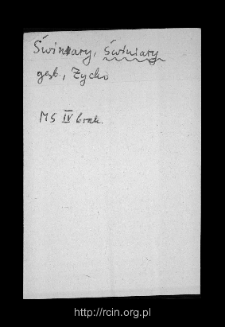 Świniary, Świniary
gęb, Życko
MS IV brak
http://rcin.org.pl